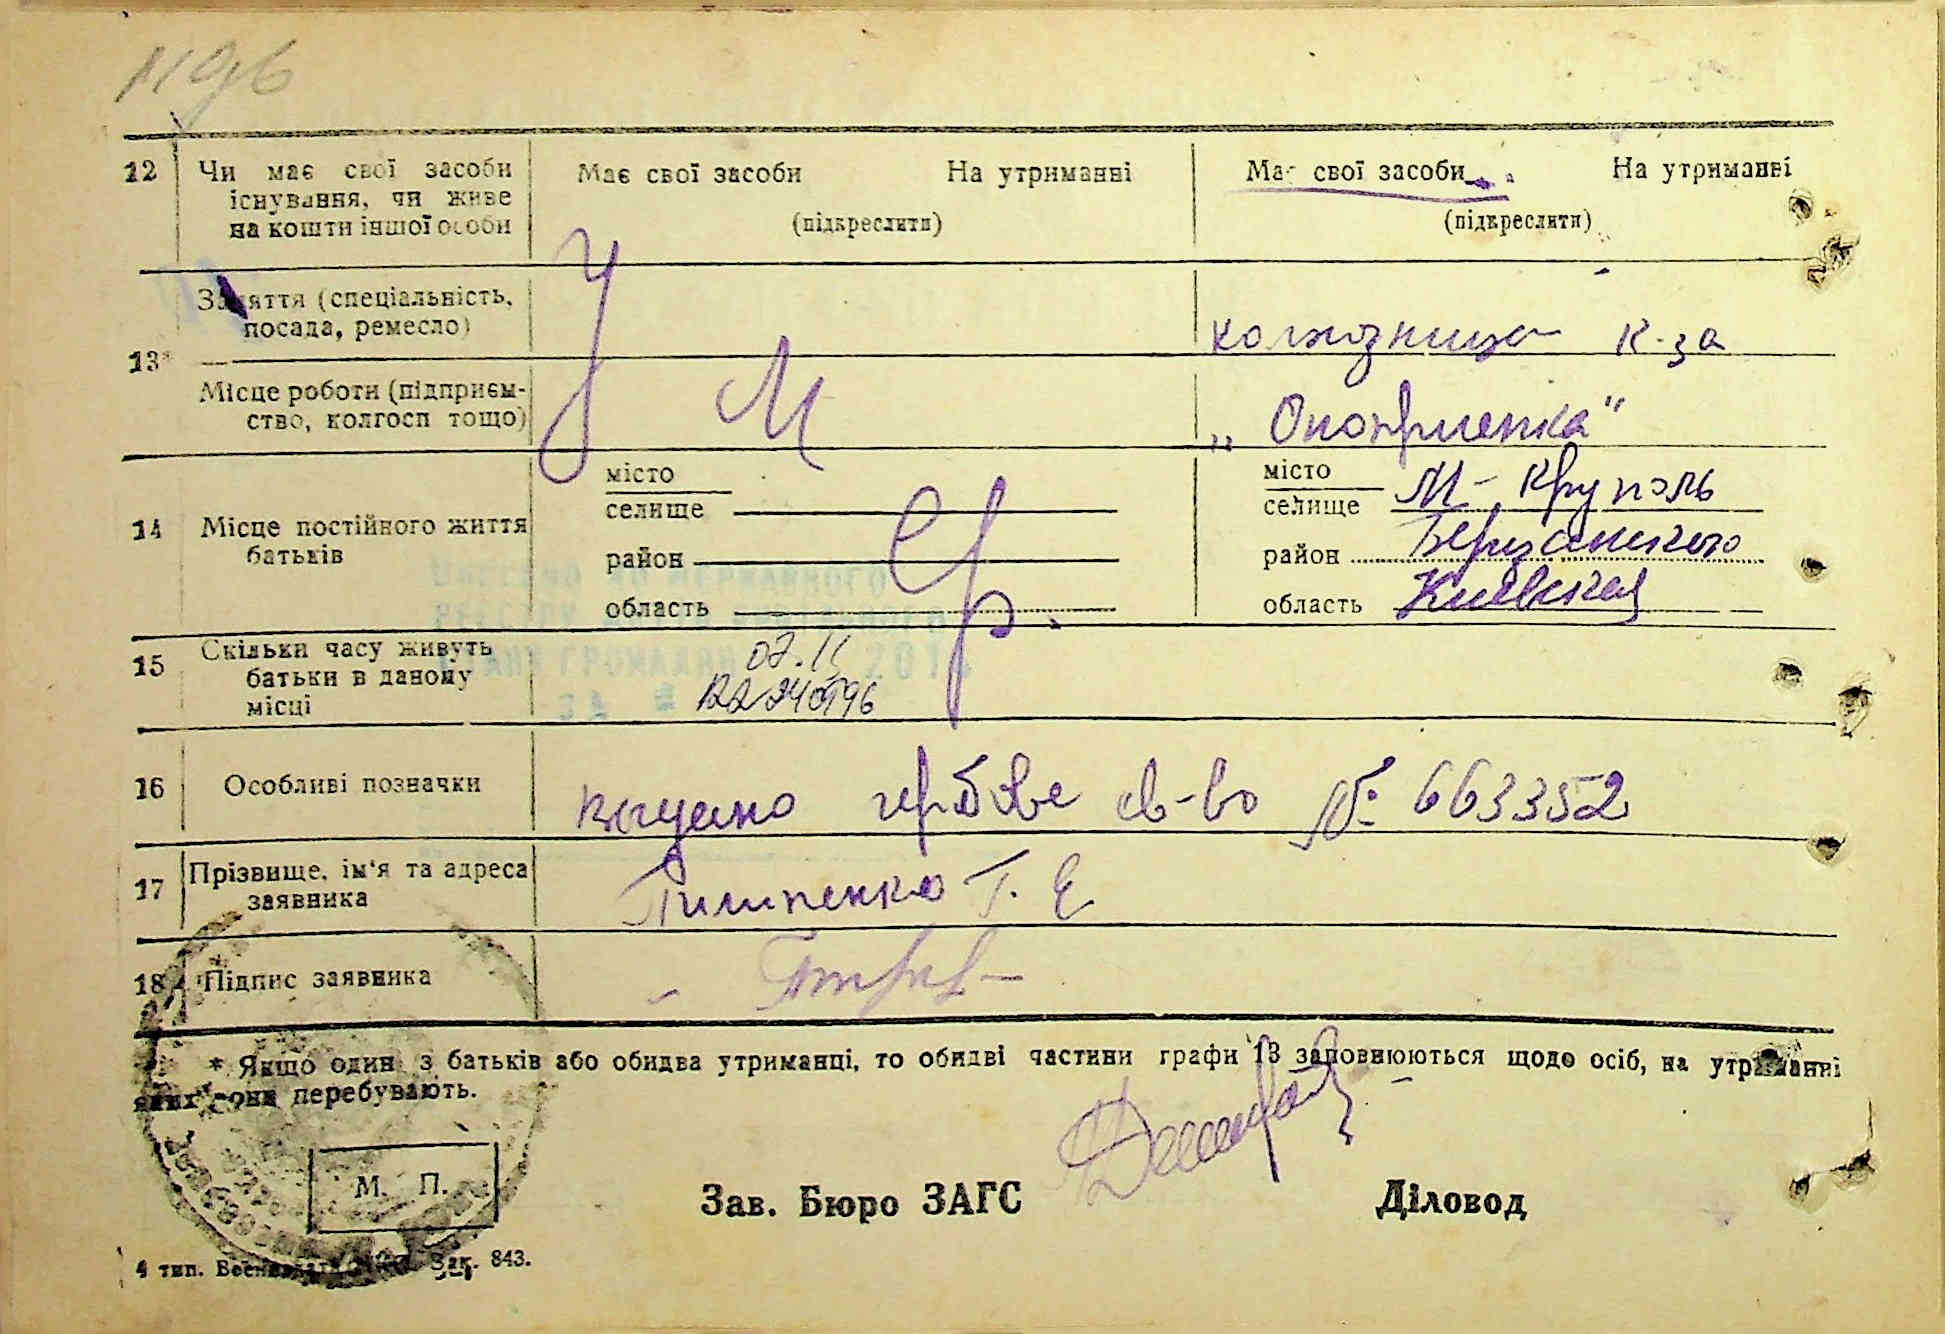 12 Чи має свої засоби існування, чи живе на кошти іншої особи
Має свої засоби На утриманні
(підкреслити)
Має свої засоби На утриманні
(підкреслити)
13*
Заняття (спеціальність, посада, ремесло)
колхозница к-за
Місце роботи (підприємство, колгосп тощо)
умер.
14 Місце постійного життя батьків
місто
селище
район
область
місто
селище М-Круполь
район Березанского
область Киевская
Внесено до Державного
реєстру актів цивільного
стану громадян 2014
за №
07.11
15 Скільки часу живуть батьки в даному місці
16 Особливі позначки
выдано гербове св-во № 663352
17 Прізвище, ім'я та адреса заявника
18 Підпис заявника
* Якщо один з батьків або обидва утриманці, то обидві частини графи 13 заповнюються щодо осіб, на утриманні
яких вони перебувають.
М. П.
Зав. Бюро ЗАГС
Діловод
4 тип. Зак. 843.